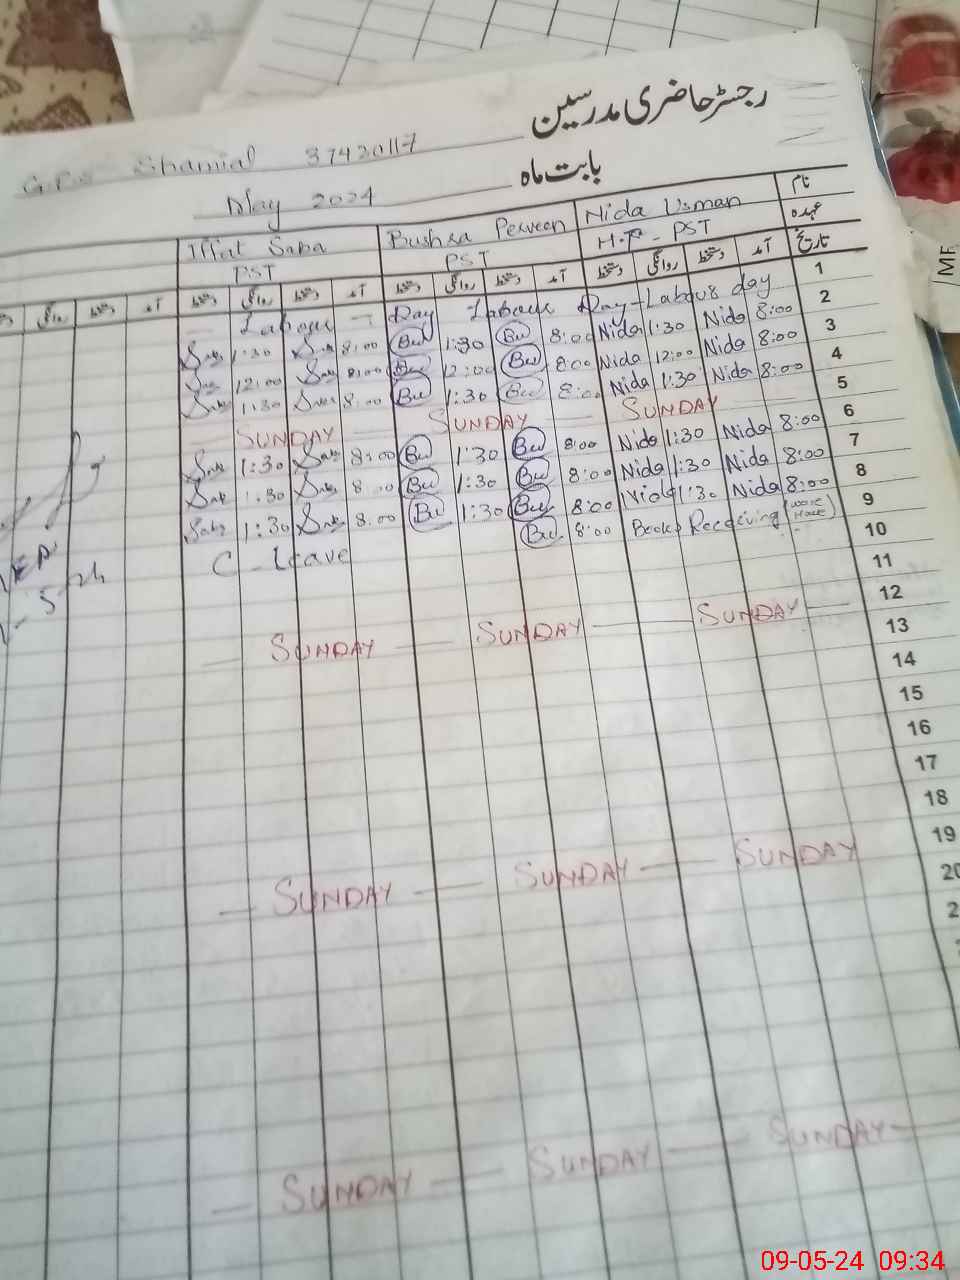 رجسٹر حاضری مدرسین
G.P.S Shamial 37420117
بابت ماہ
May 2024
نام Nida Usman Bushra Perveen Iffat Saba
عہدہ H.T - PST PST PST
تاریخ آمد دستخط روانگی دستخط آمد دستخط روانگی دستخط آمد دستخط روانگی دستخط آمد دستخط روانگی
1 Labour Day Labour Day - Labour day
2 1:30 8:00 Bu 1:30 Bu 8:00 Nida 1:30 Nida 8:00
3 12:00 8:00 Bu 12:00 Bu 8:00 Nida 12:00 Nida 8:00
4 1:30 8:00 Bu 1:30 Bu 8:00 Nida 1:30 Nida 8:00
5 SUNDAY SUNDAY SUNDAY
6 1:30 8:00 Bu 1:30 Bu 8:00 Nida 1:30 Nida 8:00
7 1:30 8:00 Bu 1:30 Bu 8:00 Nida 1:30 Nida 8:00
8 1:30 8:00 Bu 1:30 Bu 8:00 Nida 1:30 Nida 8:00
9 C Leave Bu 8:00 Books Receiving
10
11
12 SUNDAY SUNDAY SUNDAY
13
14
15
16
17
18
19 SUNDAY SUNDAY SUNDAY
20
SUNDAY SUNDAY SUNDAY
09-05-24 09:34